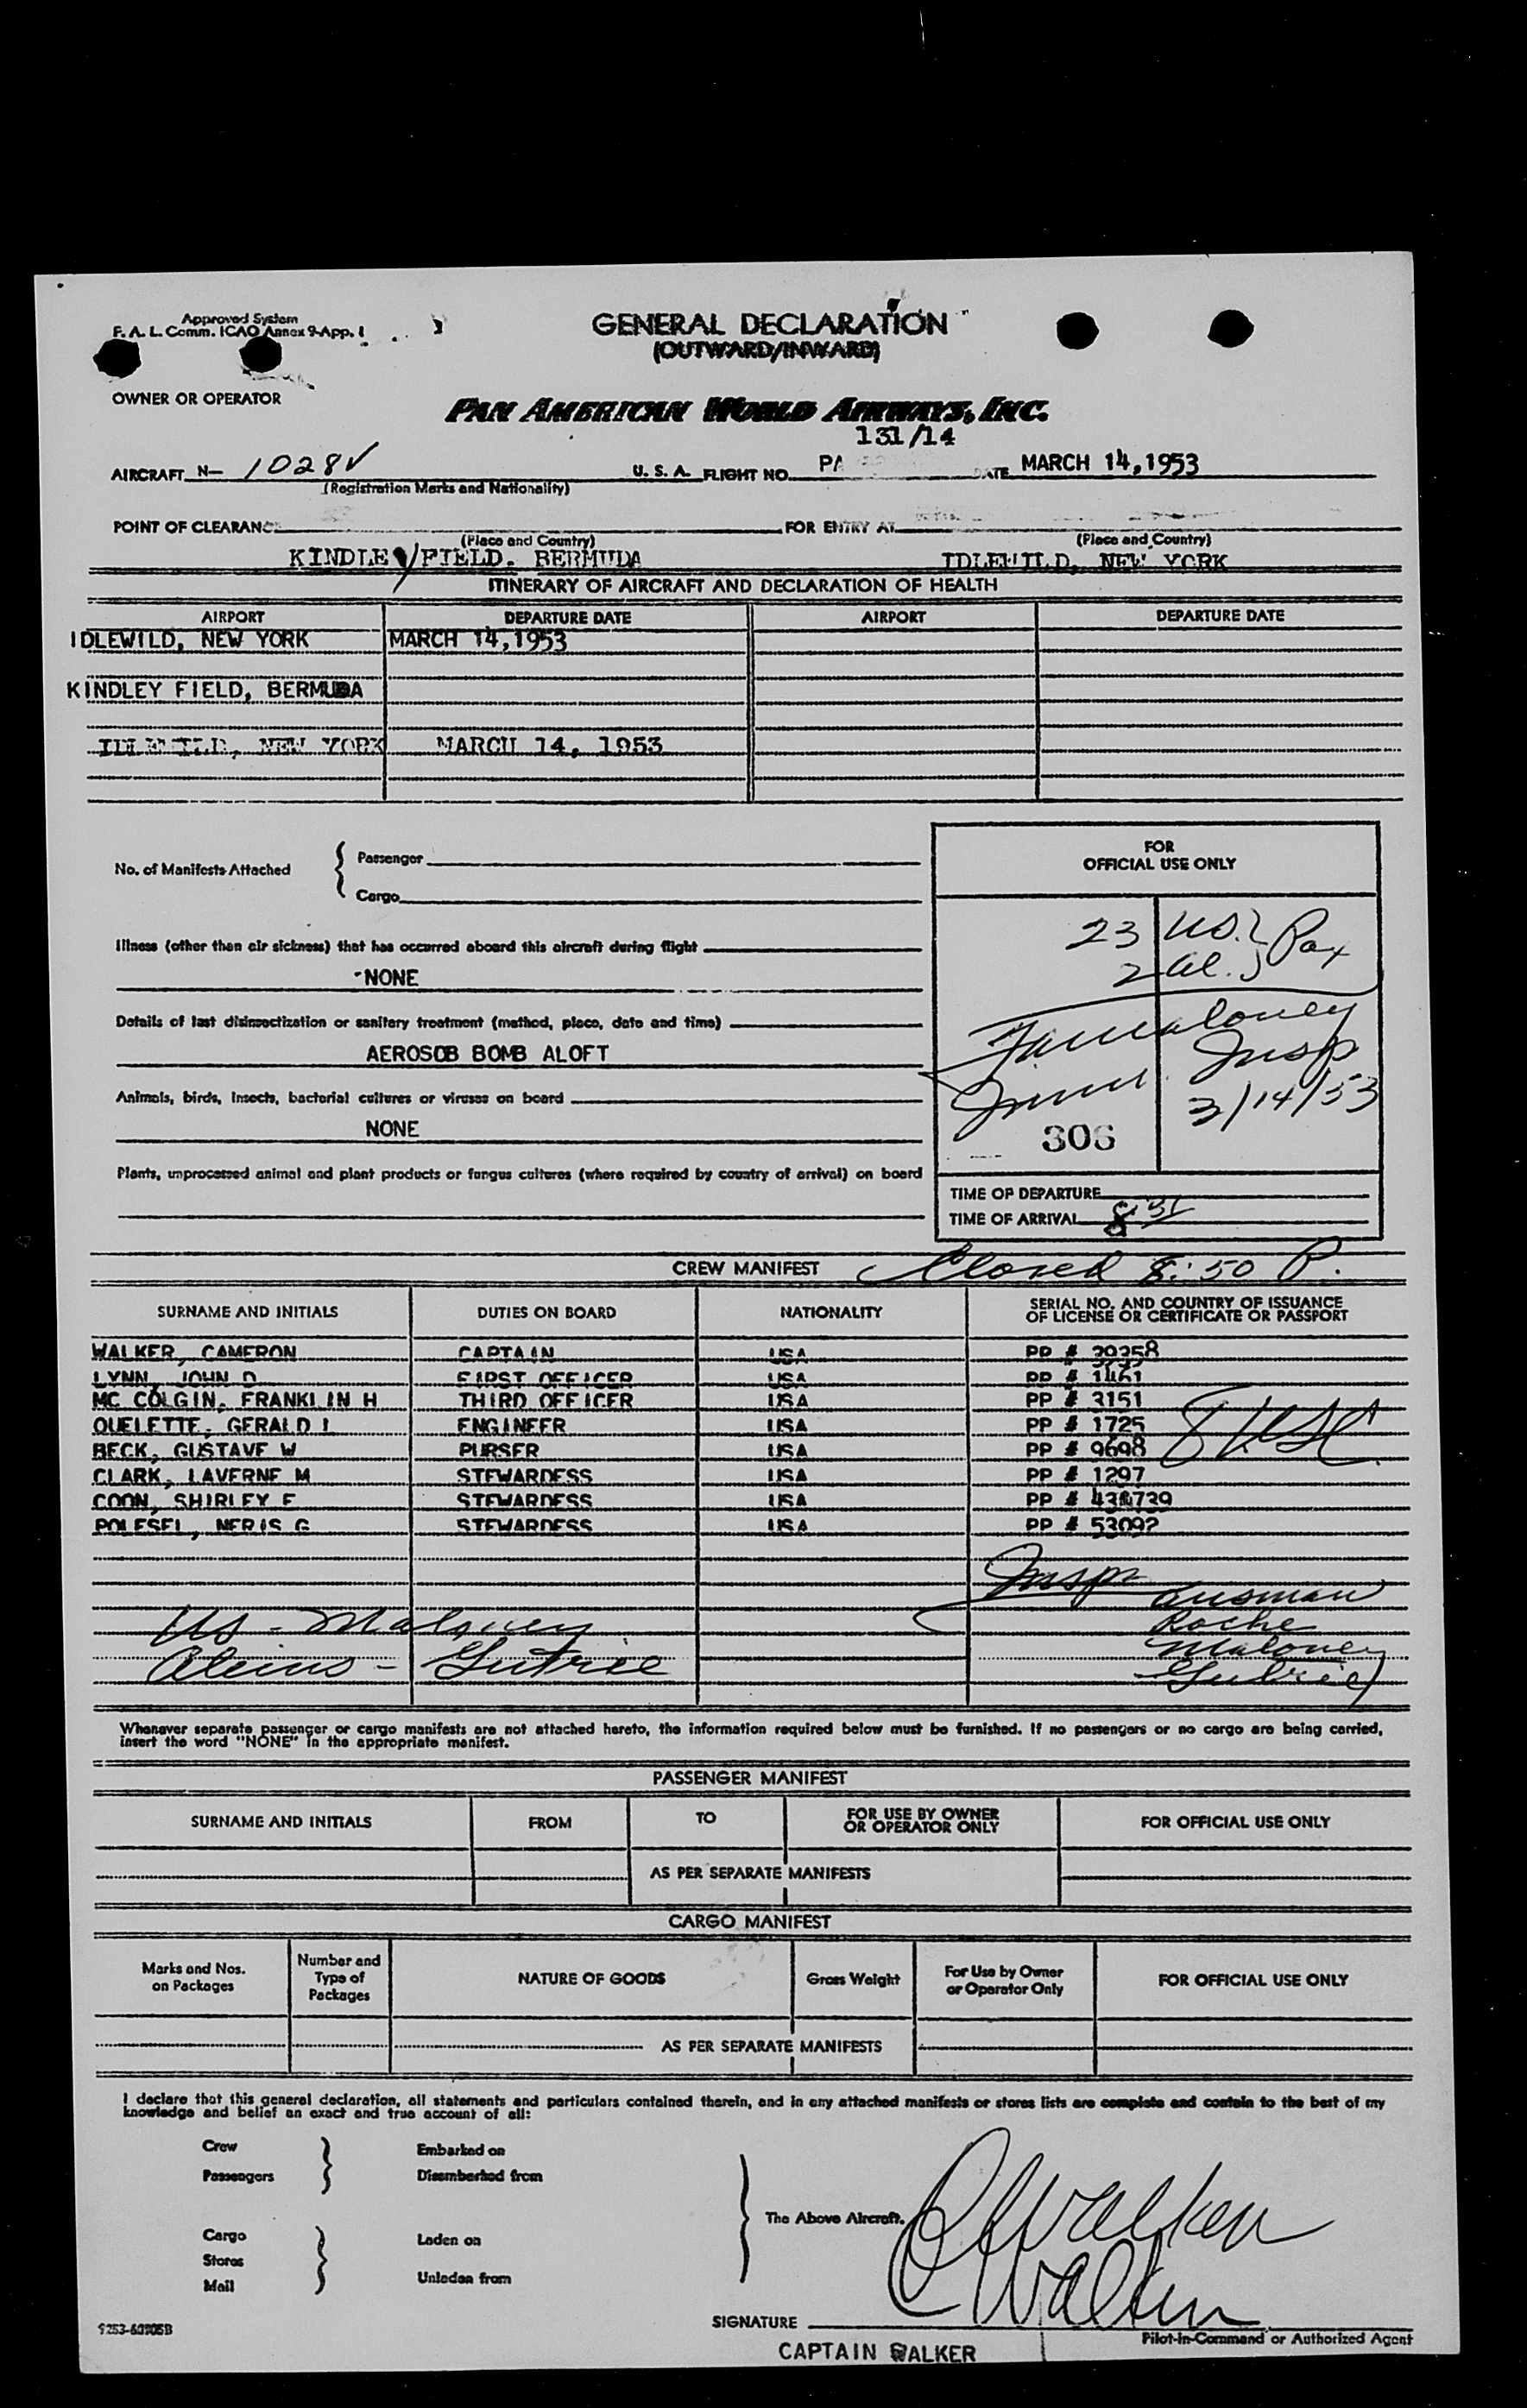 Approved System
F. A. L. Comm. ICAO Annex 9-App. I
GENERAL DECLARATION
(OUTWARD/INWARD)
OWNER OR OPERATOR
PAN AMERICAN WORLD AIRWAYS, INC.
131/14
AIRCRAFT N- 1028V U. S. A. FLIGHT NO. PA DATE MARCH 14,1953
(Registration Marks and Nationality)
POINT OF CLEARANCE FOR ENTRY AT
(Place and Country) (Place and Country)
KINDLEY FIELD, BERMUDA IDLEWILD, NEW YORK
ITINERARY OF AIRCRAFT AND DECLARATION OF HEALTH
AIRPORT DEPARTURE DATE AIRPORT DEPARTURE DATE
IDLEWILD, NEW YORK MARCH 14,1953
KINDLEY FIELD, BERMUDA
IDLEWILD, NEW YORK MARCH 14, 1953
FOR
OFFICIAL USE ONLY
No. of Manifests Attached { Passenger
Cargo
23 US. } Pax
2 al.
Illness (other than air sickness) that has occurred aboard this aircraft during flight
NONE
Details of last disinsectization or sanitary treatment (method, place, date and time)
Maloney
AEROSOB BOMB ALOFT
Immi. Insp
Animals, birds, insects, bacterial cultures or viruses on board
3/14/53
NONE
306
Plants, unprocessed animal and plant products or fungus cultures (where required by country of arrival) on board
TIME OF DEPARTURE
TIME OF ARRIVAL 8:31
CREW MANIFEST Closed 8:50 P.
SURNAME AND INITIALS DUTIES ON BOARD NATIONALITY SERIAL NO. AND COUNTRY OF ISSUANCE
OF LICENSE OR CERTIFICATE OR PASSPORT
WALKER, CAMERON CAPTAIN USA PP # 39358
LYNN, JOHN D FIRST OFFICER USA PP # 1461
MC COLGIN, FRANKLIN H THIRD OFFICER USA PP # 3151
OUELETTE, GERALD L ENGINEER USA PP # 1725
BECK, GUSTAVE W PURSER USA PP # 9698
8 USC
CLARK, LAVERNE M STEWARDESS USA PP # 1297
COON, SHIRLEY E STEWARDESS USA PP #
POLESEL, NERIS G STEWARDESS USA PP # 53092
Insps
Ausman
US - Maloney Roche
Aliens - Gutrie Maloney
Gutrie
Whenever separate passenger or cargo manifests are not attached hereto, the information required below must be furnished. If no passengers or no cargo are being carried,
insert the word "NONE" in the appropriate manifest.
PASSENGER MANIFEST
SURNAME AND INITIALS FROM TO FOR USE BY OWNER
OR OPERATOR ONLY FOR OFFICIAL USE ONLY
AS PER SEPARATE MANIFESTS
CARGO MANIFEST
Marks and Nos.
on Packages Number and
Type of
Packages NATURE OF GOODS Gross Weight For Use by Owner
or Operator Only FOR OFFICIAL USE ONLY
AS PER SEPARATE MANIFESTS
I declare that this general declaration, all statements and particulars contained therein, and in any attached manifests or stores lists are complete and contain to the best of my
knowledge and belief an exact and true account of all:
Crew Embarked on
Passengers Disembarked from
The Above Aircraft.
Cargo Laden on
Stores
Mail Unladen from
C Walker
C Walker
SIGNATURE
9253-60705B
Pilot-in-Command or Authorized Agent
CAPTAIN WALKER